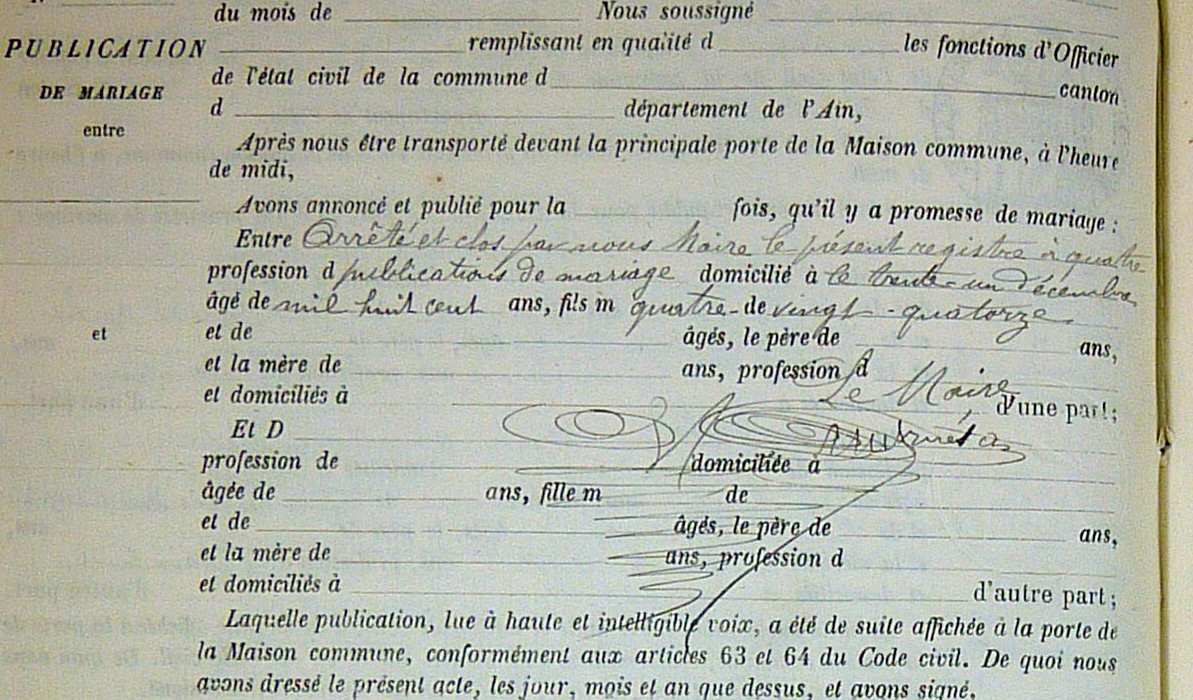 du mois de Nous soussigné
PUBLICATION remplissant en qualité d les fonctions d'Officier
DE MARIAGE de l'état civil de la commune d canton
entre d département de l'Ain,
Après nous être transporté devant la principale porte de la Maison commune, à l'heure
de midi,
Avons annoncé et publié pour la fois, qu'il y a promesse de mariage :
Entre Arrêté et clos par nous Maire le présent registre à quatre
profession d publications de mariage domicilié à le trente-un décembre
âgé de mil huit cent ans, fils m quatre- de vingt-quatorze
et et de âgés, le père de ans,
et la mère de ans, profession d
Le Maire
et domiciliés à , d'une part;
Et D
profession de domiciliée à
âgée de ans, fille m de
et de âgés, le père de ans,
et la mère de ans, profession d
et domiciliés à d'autre part;
Laquelle publication, lue à haute et intelligible voix, a été de suite affichée à la porte de
la Maison commune, conformément aux articles 63 et 64 du Code civil. De quoi nous
avons dressé le présent acte, les jour, mois et an que dessus, et avons signé.